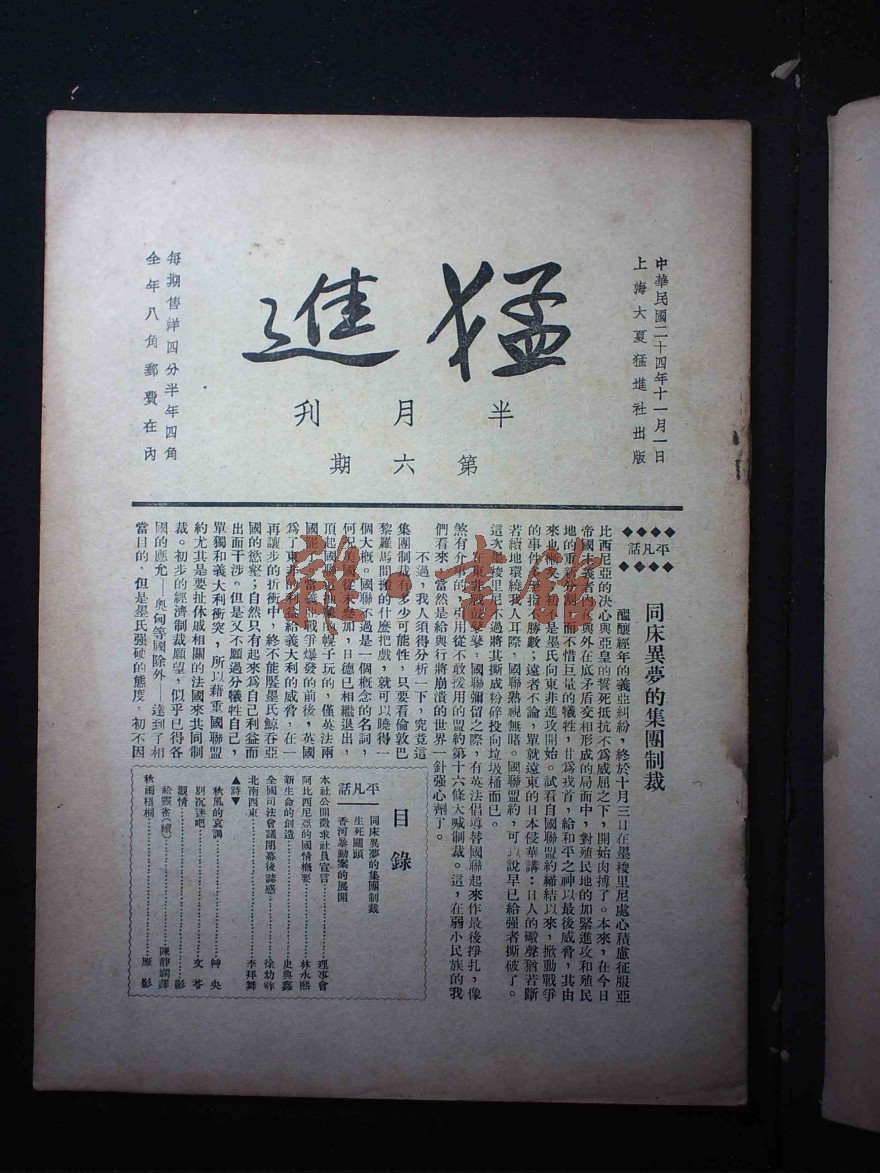 中華民國二十四年十一月一日
上海大夏猛進社出版
猛進
半月刊
第六期
每期售洋四分半年四角
全年八角郵費在內
平凡話
同床異夢的集團制裁
醞釀經年的義亞糾紛，終於十月三日在墨梭里尼處心積慮征服亞
比西尼亞的決心與亞皇的誓死抵抗不爲威屈之下，開始肉搏了。本來，在今日
帝國主義者內在與外在底矛盾交相形成的局面中，對殖民地的加緊進攻和殖民
地的重新分割，而不惜巨量的犧牲，甘爲戎首，給和平之神以最後威脅，其由
來也漸矣，初不是墨氏向東非進攻開始。試看自國聯盟約締結以來，掀動戰爭
的事件，不勝數，遠者不論，單就遠東的日本侵華講：日人的礮聲猶若斷
若續地環繞我人耳際，國聯熟視無睹。國聯盟約，可以說早已給强者撕破了。
這次墨梭里尼不過將其撕成粉碎投向垃圾桶而已。
在東北戰鼓聲，國聯彌留之際，有英法倡導替國聯起來作最後掙扎，像
煞有介事的，引用從不敢援用的盟約第十六條大喊制裁。這，在弱小民族的我
們看來，當然是給與行將崩潰的世界一針强心劑了。
不過，我人須得分析一下，究竟這
集團制裁有多少可能性，只要看倫敦巴
黎羅馬間搬的什麽把戲，就可以曉得一
個大槪。國聯不過是一個槪念的名詞，
何況美國從未參加，日德已相繼退出，
頂起國聯這個幌子玩的，僅英法兩
國罷了。當義亞戰爭爆發的前後，英國
爲了東非的利益給義大利的威脅，在一
再讓步的折衝中，終不能饜墨氏鯨吞亞
國的慾壑；自然只有起來爲自己利益而
出面干涉。但是又不願過分犧牲自己，
單獨和義大利衝突，所以藉重國聯盟
約尤其是要扯休戚相關的法國來共同制
裁。初步的經濟制裁願望，似乎已得各
國的應允——奥匈等國除外——達到了相
當目的，但是墨氏强硬的態度，初不因
目錄
平凡話
同床異夢的集團制裁
生死關頭
香河暴動案的展開
本社公開徵求社員宣言……理事會
阿比西尼亞的國情槪要……林永熙
新生命的創造……史典鑫
全國司法會議閉幕後誌感……徐幼祚
北南西東……李拜舞
▲詩▼
秋風的哀調……艸央
別沉迷吧……文苓
觀情……影
給雲雀（續）……陳靜瀾譯
秋雨梧桐……雁影
雜·書館